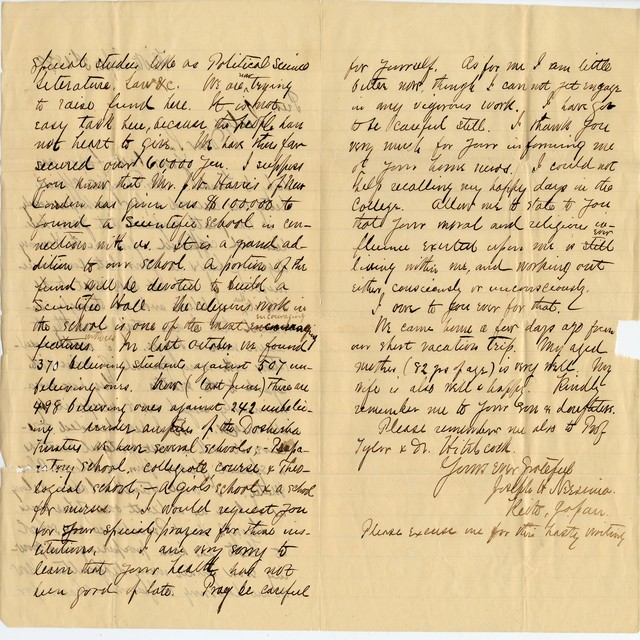 special studies like as Political Science
Literature, Law &c. We are now trying
to raise fund here. It is not
easy task here, because the people have
not heart to give. We have thus far
secured over 60000 Yen. I suppose
you know that Mr. J. N. Harris of New
London has given us $100000 to
found a Scientific School in con-
nections with us. It is a grand ad-
dition to our school. A portion of the
fund will be devoted to build a
Scientific Hall. The religious work in
the school is one of the most encouraging
features. In last October we found
373 believing students against 507 un-
believing ones. Now (last June) there are
498 believing ones against 242 unbeliev-
ing under auspices of the Doshisha
Trustees We have several schools, - Prepa-
ratory school, - collegiate course & Theo-
logical school, - a Girls School & a school
for nurses. I would request you
for your special prayers for these ins-
titutions. I am very sorry to
learn that your health has not
been good of late. Pray be careful
for yourself. As for me I am little
better now, though I can not yet engage
in any vigorous work. I have got
to be careful still. I thank you
very much for your informing me
of your home news. I could not
help recalling my happy days in the
College. Allow me to state to you
that your moral and religious in-
fluence exerted upon me is ever
living within me, and working out
either consciously or unconsciously.
I owe to you ever for that.
We came home a few days ago from
our short vacation trip. My aged
mother (82 yrs of age) is very well. My
wife is also well & happy. Kindly
remember me to your son & daughters.
Please remember me also to Prof
Tyler & Dr. Hitchcock.
Yours ever grateful
Joseph H. Neesima.
Kioto, Japan.
Please excuse me for this hasty writing